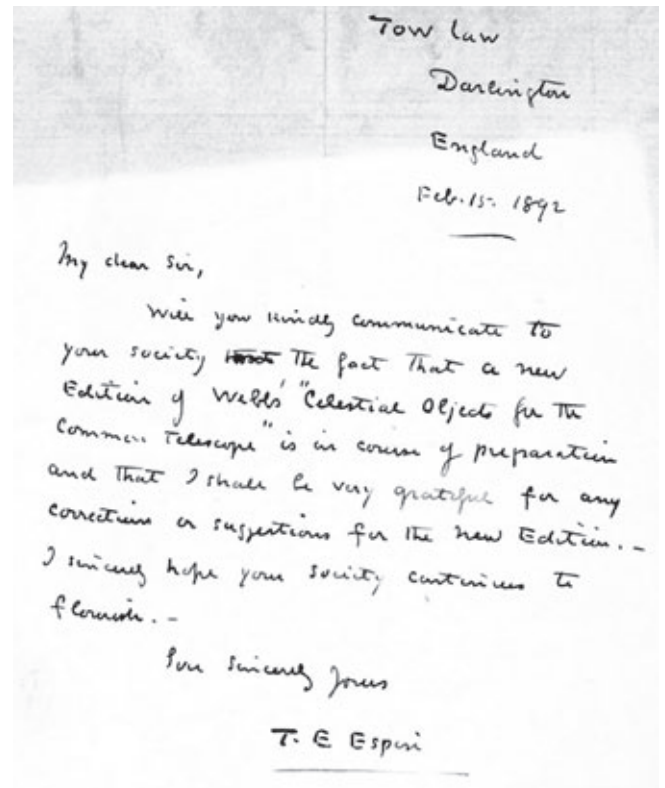 Tow Law
Darlington
England
Feb. 15. 1892
My dear Sir,
Will you kindly communicate to
your society the fact that a new
Edition of Webb's "Celestial Objects for the
Common Telescope" is in course of preparation
and that I shall be very grateful for any
corrections or suggestions for the new Edition. –
I sincerely hope your society continues to
flourish. –
Sincerely Yours
T. E Espin